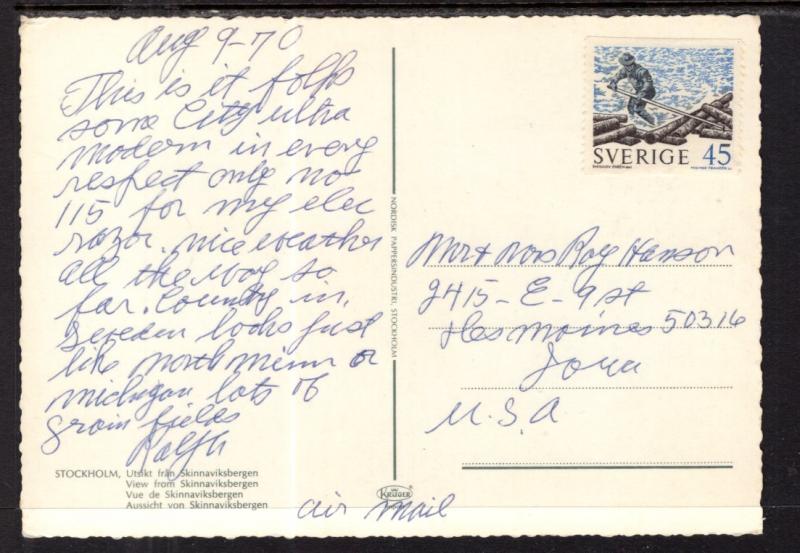 Aug 9-70
This is it folks
some City ultra
modern in every
respect only no
115 for my elec
razor. nice weather
all the way so
far. Country in
Sweden looks just
like north minn or
michigan lots of
grain fields
Ralph
STOCKHOLM, Utsikt från Skinnaviksbergen
View from Skinnaviksbergen
Vue de Skinnaviksbergen
Aussicht von Skinnaviksbergen
air mail
NORDISK PAPPERSINDUSTRI, STOCKHOLM
KRÜGER
SVERIGE 45
Mr + Mrs Roy Hanson
2415 - E - 9 st
Des Moines 50316
Iowa
U.S.A